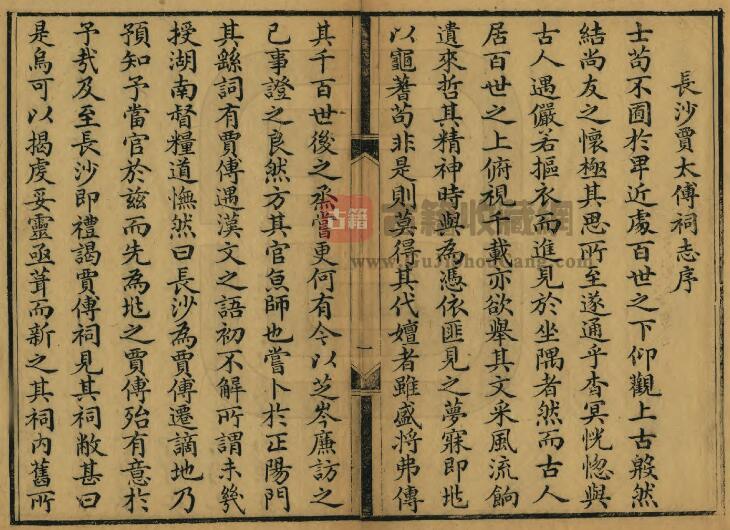 長沙賈太傅祠志序
士苟不囿於卑近處百世之下仰觀上古殽然
結尚友之懷極其思所至遂通乎杳冥恍惚與
古人遇儼若摳衣而進見於坐隅者然而古人
居百世之上俯視千載亦欲舉其文采風流餉
遺來哲其精神時與為憑依匪見之夢寐即地
以龜蓍苟非是則莫得其代嬗者雖盛將弗傳
一
其千百世後之烝嘗更何有今以芝岑廉訪之
已事證之良然方其官臮師也嘗卜於正陽門
其繇詞有賈傅遇漢文之語初不解所謂未幾
授湖南督糧道憮然曰長沙為賈傅遷謫地乃
預知予當官於茲而先為地之賈傅殆有意於
予哉及至長沙即禮謁賈傅祠見其祠敝甚曰
是烏可以揭虔妥靈亟葺而新之其祠內舊所
古籍
古籍收藏網